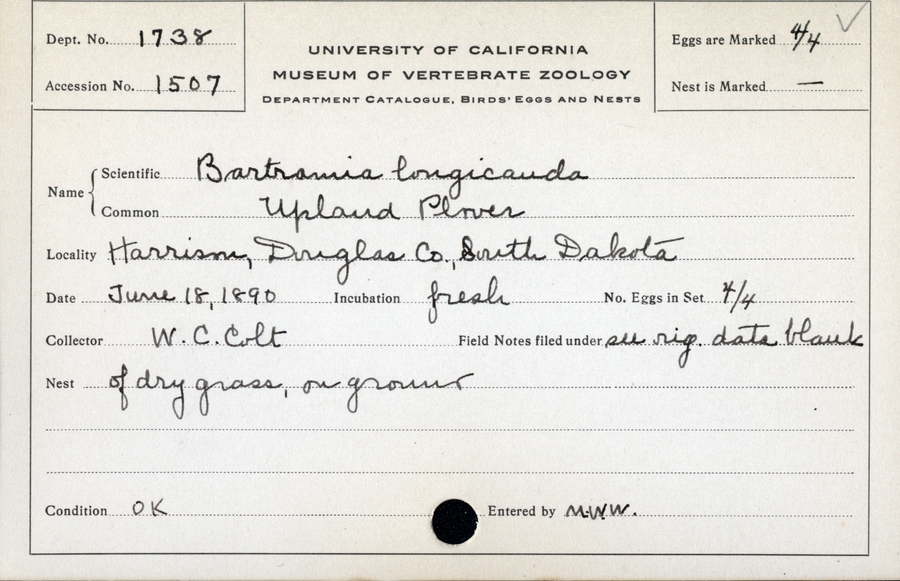 Dept. No. 1738
Accession No. 1507
UNIVERSITY OF CALIFORNIA
MUSEUM OF VERTEBRATE ZOOLOGY
DEPARTMENT CATALOGUE, BIRDS' EGGS AND NESTS
Eggs are Marked 4/4
Nest is Marked —
Name
Scientific Bartramia longicauda
Common Upland Plover
Locality Harrison, Douglas Co., South Dakota
Date June 18, 1890 Incubation fresh No. Eggs in Set 4/4
Collector W. C. Colt Field Notes filed under see rig. data blank
Nest of dry grass, on ground
Condition OK Entered by M.W.W.